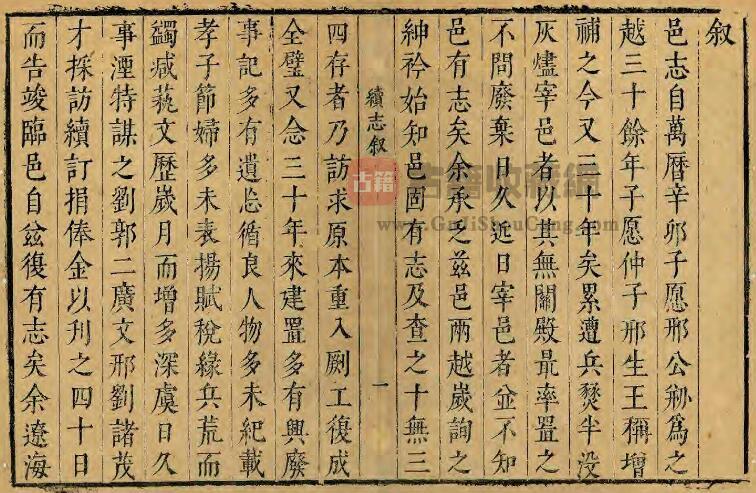 叙
邑志自萬曆辛卯子愿邢公刱爲之
越三十餘年子愿仲子邢生王稱增
補之今又三十年矣累遭兵燹半没
灰燼宰邑者以其無關殿最率置之
不問廢棄日久近日宰邑者並不知
邑有志矣余承乏兹邑兩越歲詢之
紳衿始知邑固有志及查之十無三
續志叙 一
四存者乃訪求原本重入劂工復成
全璧又念三十年來建置多有興廢
事記多有遺忘循良人物多未紀載
孝子節婦多未表揚賦稅緣兵荒而
蠲减藝文歷歲月而增多深虞日久
事湮特謀之劉郭二廣文邢劉諸茂
才採訪續訂捐俸金以刋之四十日
而告竣臨邑自兹復有志矣余遼海
古籍
www.GuJiShouCang.com